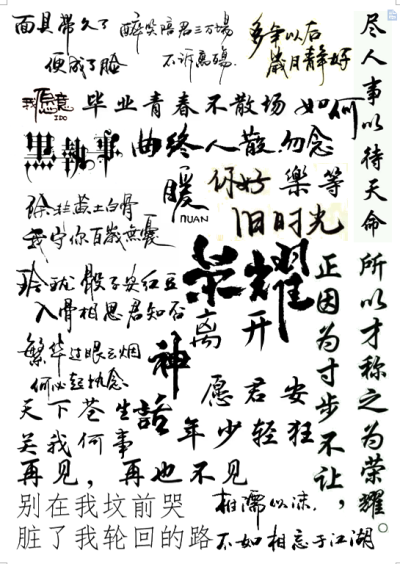 面具带久了
便成了脸
醉笑陪君三万場
不诉离殇
多年以后
歲月静好
尽人事以待天命
我愿意
IDO
毕业青春不散场
如何
黑執事
曲终人散勿念
暖
NUAN
你好
樂等
旧时光
徐北黄土白骨
我守你百歲無憂
玲珑骰子安红豆
入骨相思君知否
荣耀
离开
正因为寸步不让，
所以才称之为荣耀。
繁华过眼云烟
何必轻执念
神話
愿君安
天下苍生
关我何事
年少轻狂
再见，再也不见
别在我坟前哭
脏了我轮回的路
相濡以沫，
不如相忘于江湖